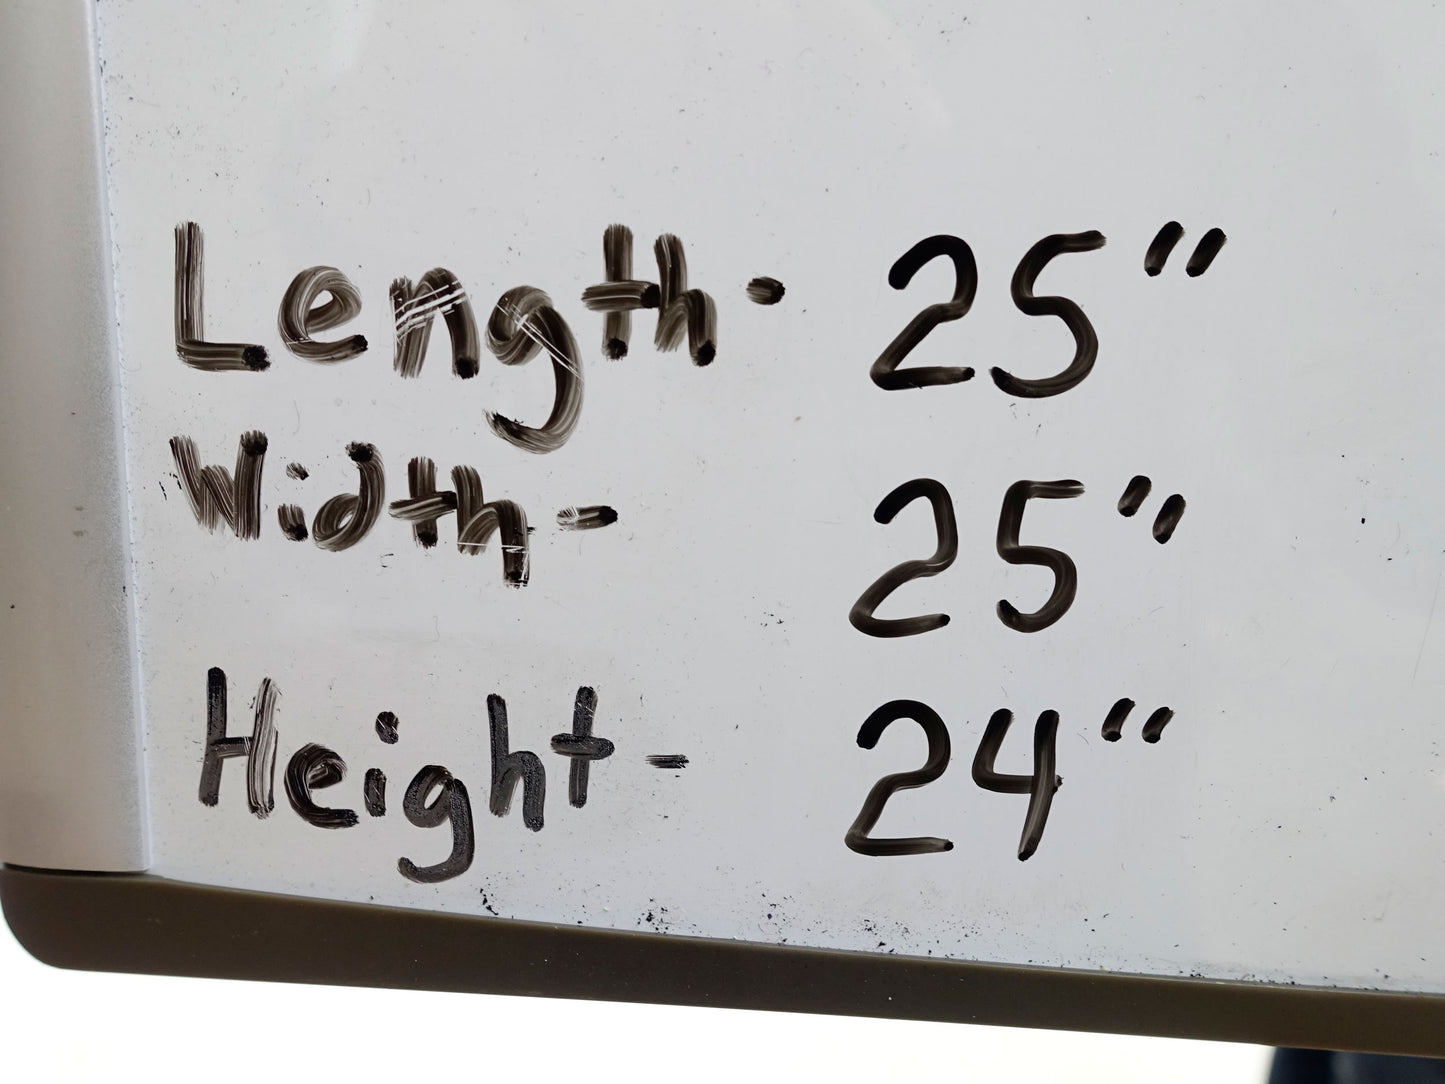 Length- 25"
Width- 25"
Height- 24"